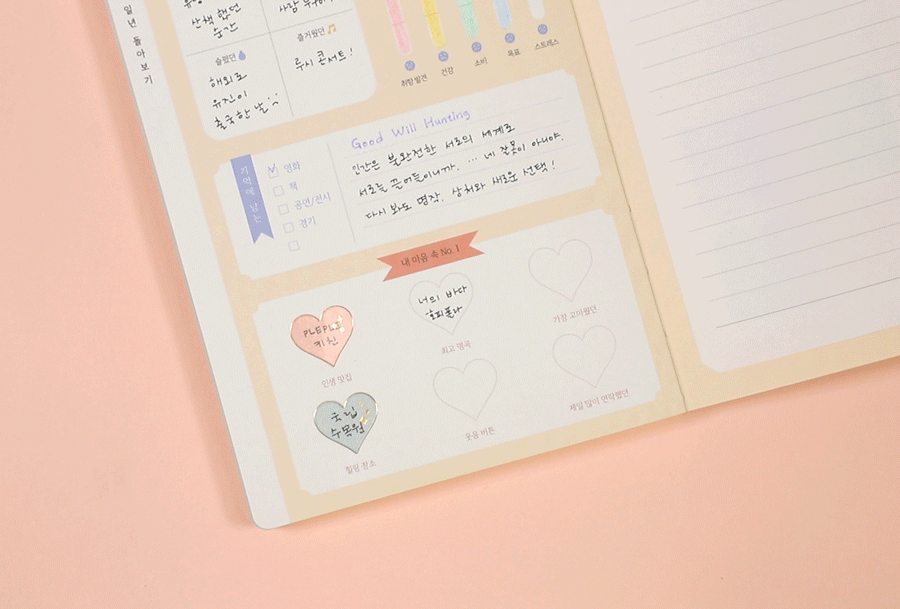 일년 돌아보기
산책했던
순간
슬펐던
해외로
유진이
출국한 날
즐거웠던
루시 콘서트!
취향 발견
건강
소비
목표
스트레스
기억에 남는
영화
책
공연/전시
경기
Good Will Hunting
인간은 불완전한 서로의 세계로
서로를 끌어들이니까. … 네 잘못이 아니야.
다시 봐도 명작. 상처와 새로운 선택!
내 마음 속 No. 1
PLEPLE
키친
인생 맛집
너의 바다
호피폴라
최고 명곡
가장 고마웠던
국립
수목원
힐링 장소
웃음 버튼
제일 많이 연락했던